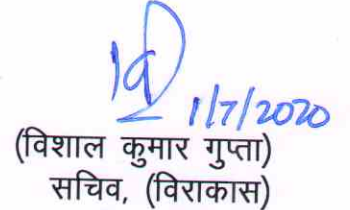 1/7/2020
(विशाल कुमार गुप्ता)
सचिव, (विराकास)